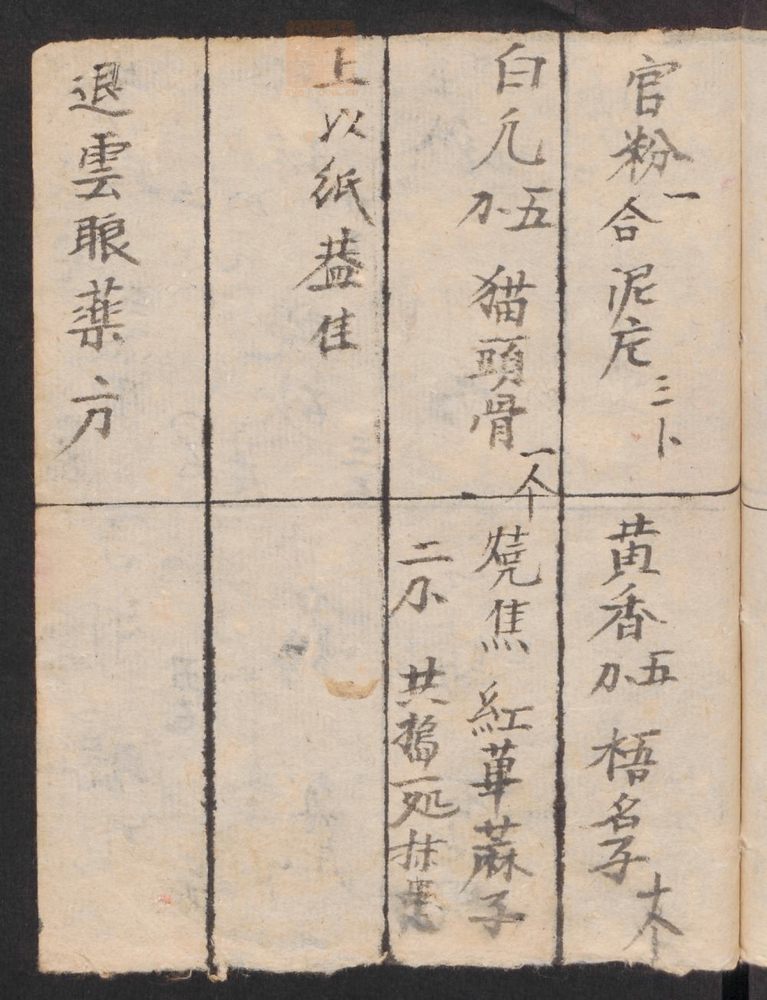 官粉一合泥庀三卜 黄香五分 梧名子十个
白凢五分 猫頭骨一个 燒焦 紅萆蔴子
二分 共搗一処抹患
上以紙葢佳
退雲眼薬方